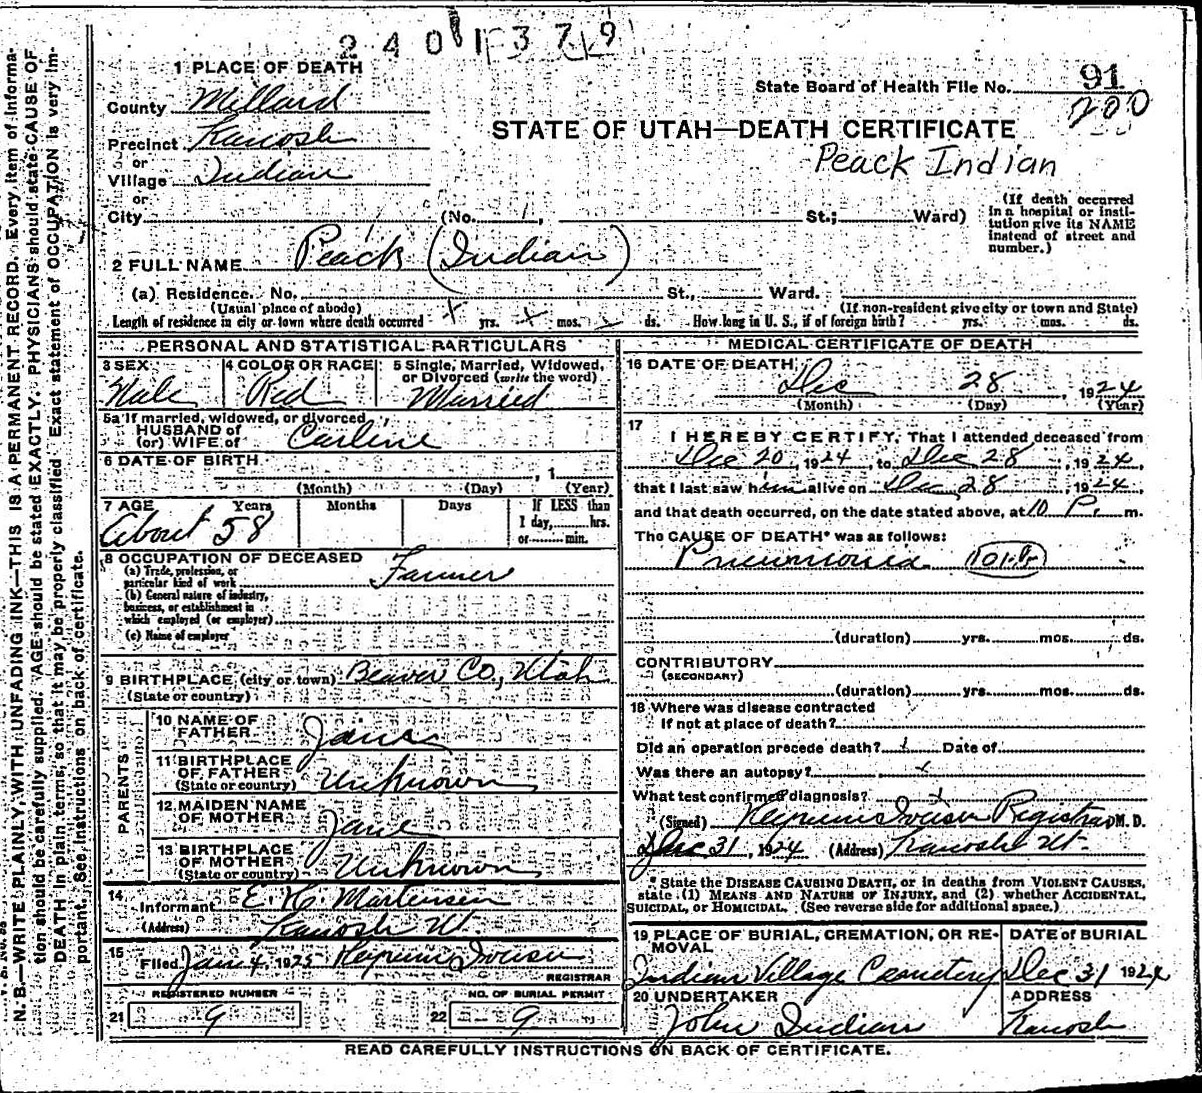 2 4 0 1 3 7 9
1 PLACE OF DEATH
County Millard
Precinct Kanosh
or
Village Indian
or
City (No. , St.; Ward)
State Board of Health File No. 91
200
STATE OF UTAH—DEATH CERTIFICATE
Peack Indian
(If death occurred
in a hospital or insti-
tution give its NAME
instead of street and
number.)
2 FULL NAME Peack (Indian)
(a) Residence. No. St., Ward.
(Usual place of abode) (If non-resident give city or town and State)
Length of residence in city or town where death occurred x yrs. x mos. ds. How long in U. S., if of foreign birth? yrs. mos. ds.
PERSONAL AND STATISTICAL PARTICULARS
3 SEX
Male
4 COLOR OR RACE
Red
5 Single, Married, Widowed,
or Divorced (write the word)
Married
5a If married, widowed, or divorced
HUSBAND of
(or) WIFE of Carline
6 DATE OF BIRTH , 1
(Month) (Day) (Year)
7 AGE Years Months Days If LESS than
1 day, hrs.
or min.
About 58
8 OCCUPATION OF DECEASED
(a) Trade, profession, or
particular kind of work Farmer
(b) General nature of industry,
business, or establishment in
which employed (or employer)
(c) Name of employer
9 BIRTHPLACE (city or town) Beaver Co., Utah
(State or country)
PARENTS
10 NAME OF
FATHER
11 BIRTHPLACE
OF FATHER
(State or country) Unknown
12 MAIDEN NAME
OF MOTHER Jane
13 BIRTHPLACE
OF MOTHER
(State or country) Unknown
14
Informant E. K. Martensen
(Address) Kanosh Ut.
15
Filed Jan 4, 1925
REGISTRAR
REGISTERED NUMBER
21 9
NO. OF BURIAL PERMIT
22 9
MEDICAL CERTIFICATE OF DEATH
16 DATE OF DEATH
Dec 28 1924
(Month) (Day) (Year)
17
I HEREBY CERTIFY, That I attended deceased from
Dec 20, 1924, to Dec 28, 1924,
that I last saw him alive on Dec 28, 1924,
and that death occurred, on the date stated above, at 10 P. m.
The CAUSE OF DEATH* was as follows:
Pneumonia
(duration) yrs. mos. ds.
CONTRIBUTORY
(SECONDARY)
(duration) yrs. mos. ds.
18 Where was disease contracted
If not at place of death?
Did an operation precede death? x Date of
Was there an autopsy? x
What test confirmed diagnosis? x
(Signed) Registrar M. D.
Dec 31, 1924 (Address) Kanosh Ut.
* State the DISEASE CAUSING DEATH, or in deaths from VIOLENT CAUSES,
state (1) MEANS AND NATURE OF INJURY, and (2) whether ACCIDENTAL,
SUICIDAL, or HOMICIDAL. (See reverse side for additional space.)
19 PLACE OF BURIAL, CREMATION, OR RE-
MOVAL
Indian Village Cemetery
DATE of BURIAL
Dec 31 1924
20 UNDERTAKER
John Indian
ADDRESS
Kanosh
READ CAREFULLY INSTRUCTIONS ON BACK OF CERTIFICATE.
N. B.—WRITE PLAINLY, WITH UNFADING INK—THIS IS A PERMANENT RECORD. Every item of informa-
tion should be carefully supplied. AGE should be stated EXACTLY. PHYSICIANS should state CAUSE OF
DEATH in plain terms, so that it may be properly classified. Exact statement of OCCUPATION is very im-
portant. See instructions on back of certificate.